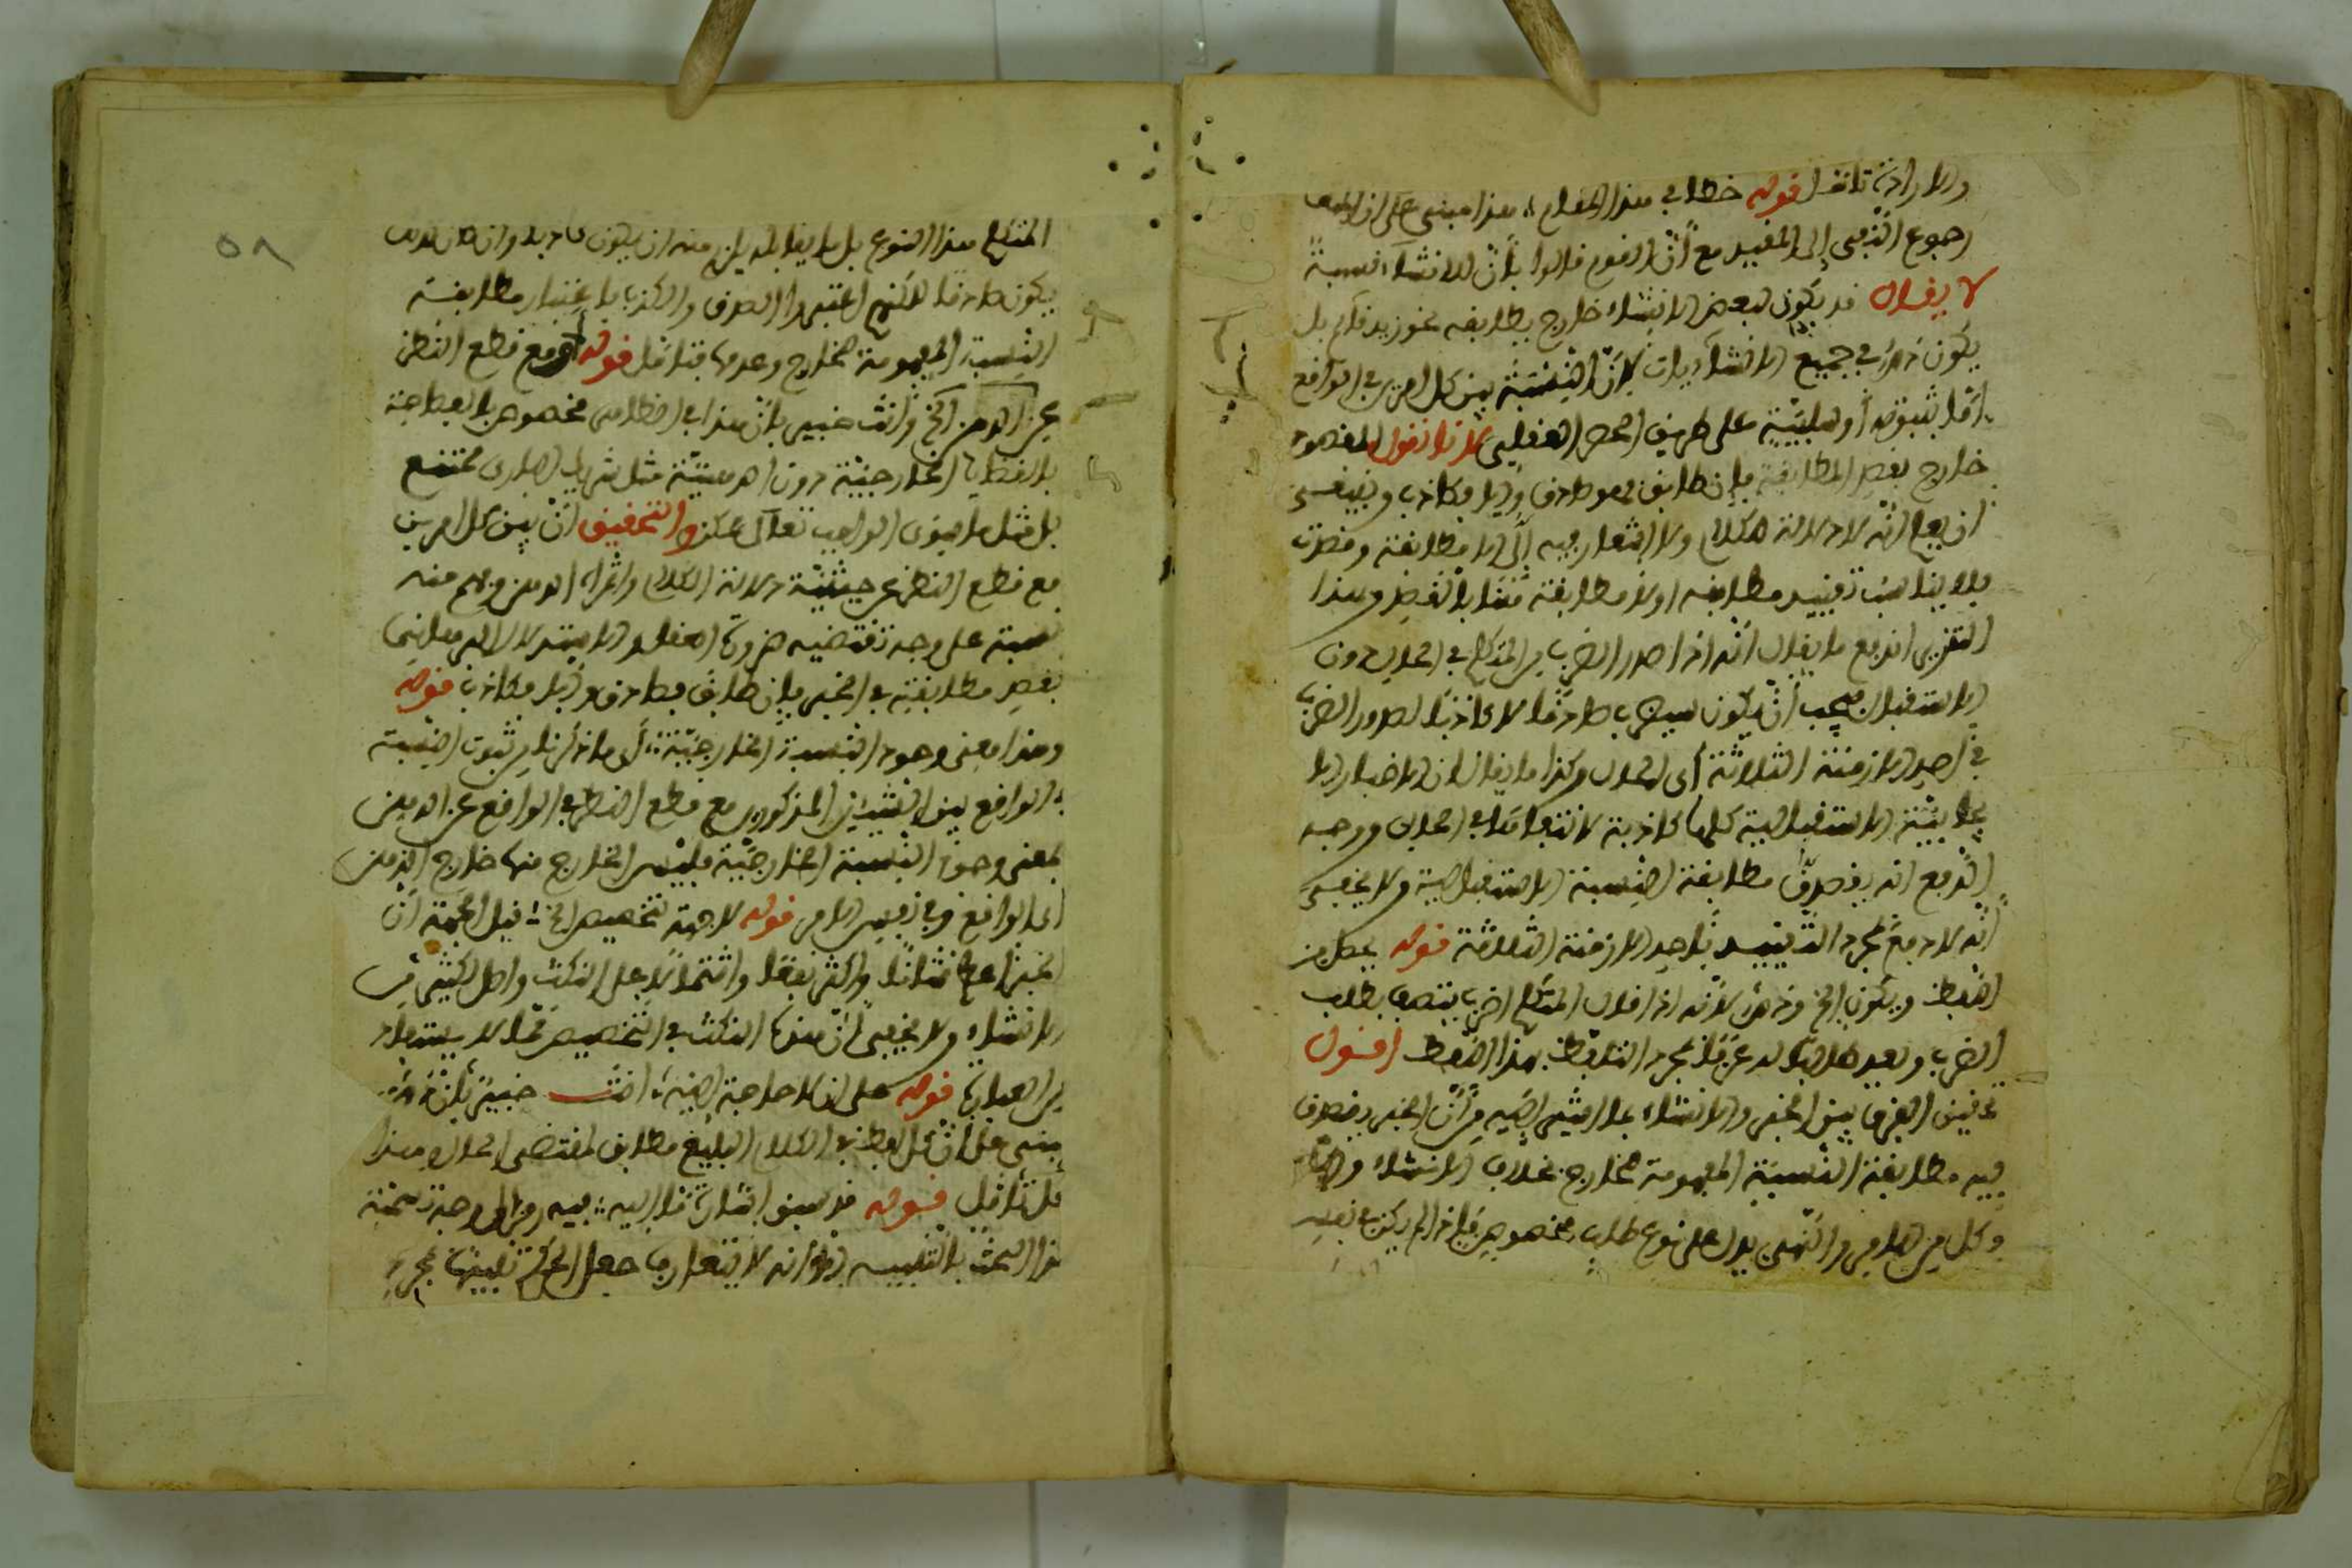 والارادة تأمل قوله خطا في هذا المقام ، هذا مبني على ان
رجوع النفي الى القيد مع أنّ القوم قالوا بأنّ للانشاء نسبة
لا يقال قد يكون لبعض الانشاء خارج يطابقه نحو زيد قائم بل
يكون ذلك في جميع الانشاءيات لأنّ النسبة بين كل امرين في الواقع
امّا ثبوتية أو سلبيّة على طريق الحصر العقلي لانا نقول المقصود
خارج بقصد المطابقة فإن طابق فهو صادق والا فكاذب وينبغي
ان يعلم أنّه لا دلالة للكلام ولا اشعار فيه إلّا بالمطابقة وقصدت
فلا يناسب تقييد مطابقه او لا مطابقة هنا بالقصد وبهذا
التقرير اندفع ما يقال أنّه اذا صدر الضرب من المتكلم في الحال دون
الاستقبال فيجب أن يكون سيضرب صادقا لا كاذبا لصدور الضرب
في أحد الازمنة الثلاثة أي الحال وكذا ما يقال ان الاخبار الا
الاستقبالية كلها كاذبة لانتفائها في الحال ووجه
الدفع انه يقصد مطابقة النسبة الاستقبالية ولا يخفى
أنّه لا دفع بمجرد التقييد بأحد الازمنة الثلاثة قوله يحصل من
اللفظ ويكون الخ وذلك لأنّه اذا قال المتكلم اضرب يتصف بطلب
الضرب وبعد طالبا له عرفا بمجرد التلفظ بهذا اللفظ اقول
تحقيق الفرق بين الخبر والانشاء بما اشير اليه من أنّ الخبر يقصد
فيه مطابقة النسبة المفهومة للخارج بخلاف الانشاء
وكل من الامر والنهي يدل على نوع طلب مخصوص فاذا لم يكن في نفس
المتكلم هذا النوع بل ما يقابله يلزم منه ان يكون كاذبا وان كان
يكون صادقا لكنهم اعتبروا الصدق والكذب باعتبار مطابقة
النسبة المفهومة للخارج وعدمها فتأمل قوله أو مع قطع النظر
عن الذهن الخ وانت خبير بأنّ هذا في مخصوص بالقضاية
بالقضايا الخارجية دون الذهنية مثل شريك الباري ممتنع
بل مثل ما سوى الواجب تعالى ممكن والتحقيق أنّ بين كل امرين
مع قطع النظر عن حيثيّة دلالة الكلام وادراك الذهن وفهم منه
نسبة على وجه تقتضيه ضرورة العقل والاستدلال
بقصد مطابقته في الخبر فإن طابق فصادق والا فكاذب قوله
وهذا معنى وجود النسبة الخارجيّة ، أي ما ذكرنا من ثبوت النسبة
في الواقع بين الشيئين المذكورين مع قطع النظر في الواقع عن الذهن
بمعنى وجود النسبة الخارجيّة فليس الخارج منها خارج الذهن
اى الواقع وفي نفس الامر قوله لا جهة لتخصيص الخ ، قيل الجهة أنّ
الخبر اعظم شانا واكثر نفعا واشتمالا على النكت واصل لكثير من
الانشاء ولا يخفى أنّ هذه النكت في التخصيص ممّا لا يستفاد
من العبارة قوله على انه لا حاجة اليه ، انت خبير بأنّ ذلك
مبني على أنّ كل لفظ في الكلام البليغ مطابق لمقتضى الحال وهذا
محل تأمل قوله قد سبق اشارة ما اليه ، فيه رمز الى وجه تسمية
هذا البحث بالتنبيه وأنه لا يتعارف جعل تنبيها بمجرد